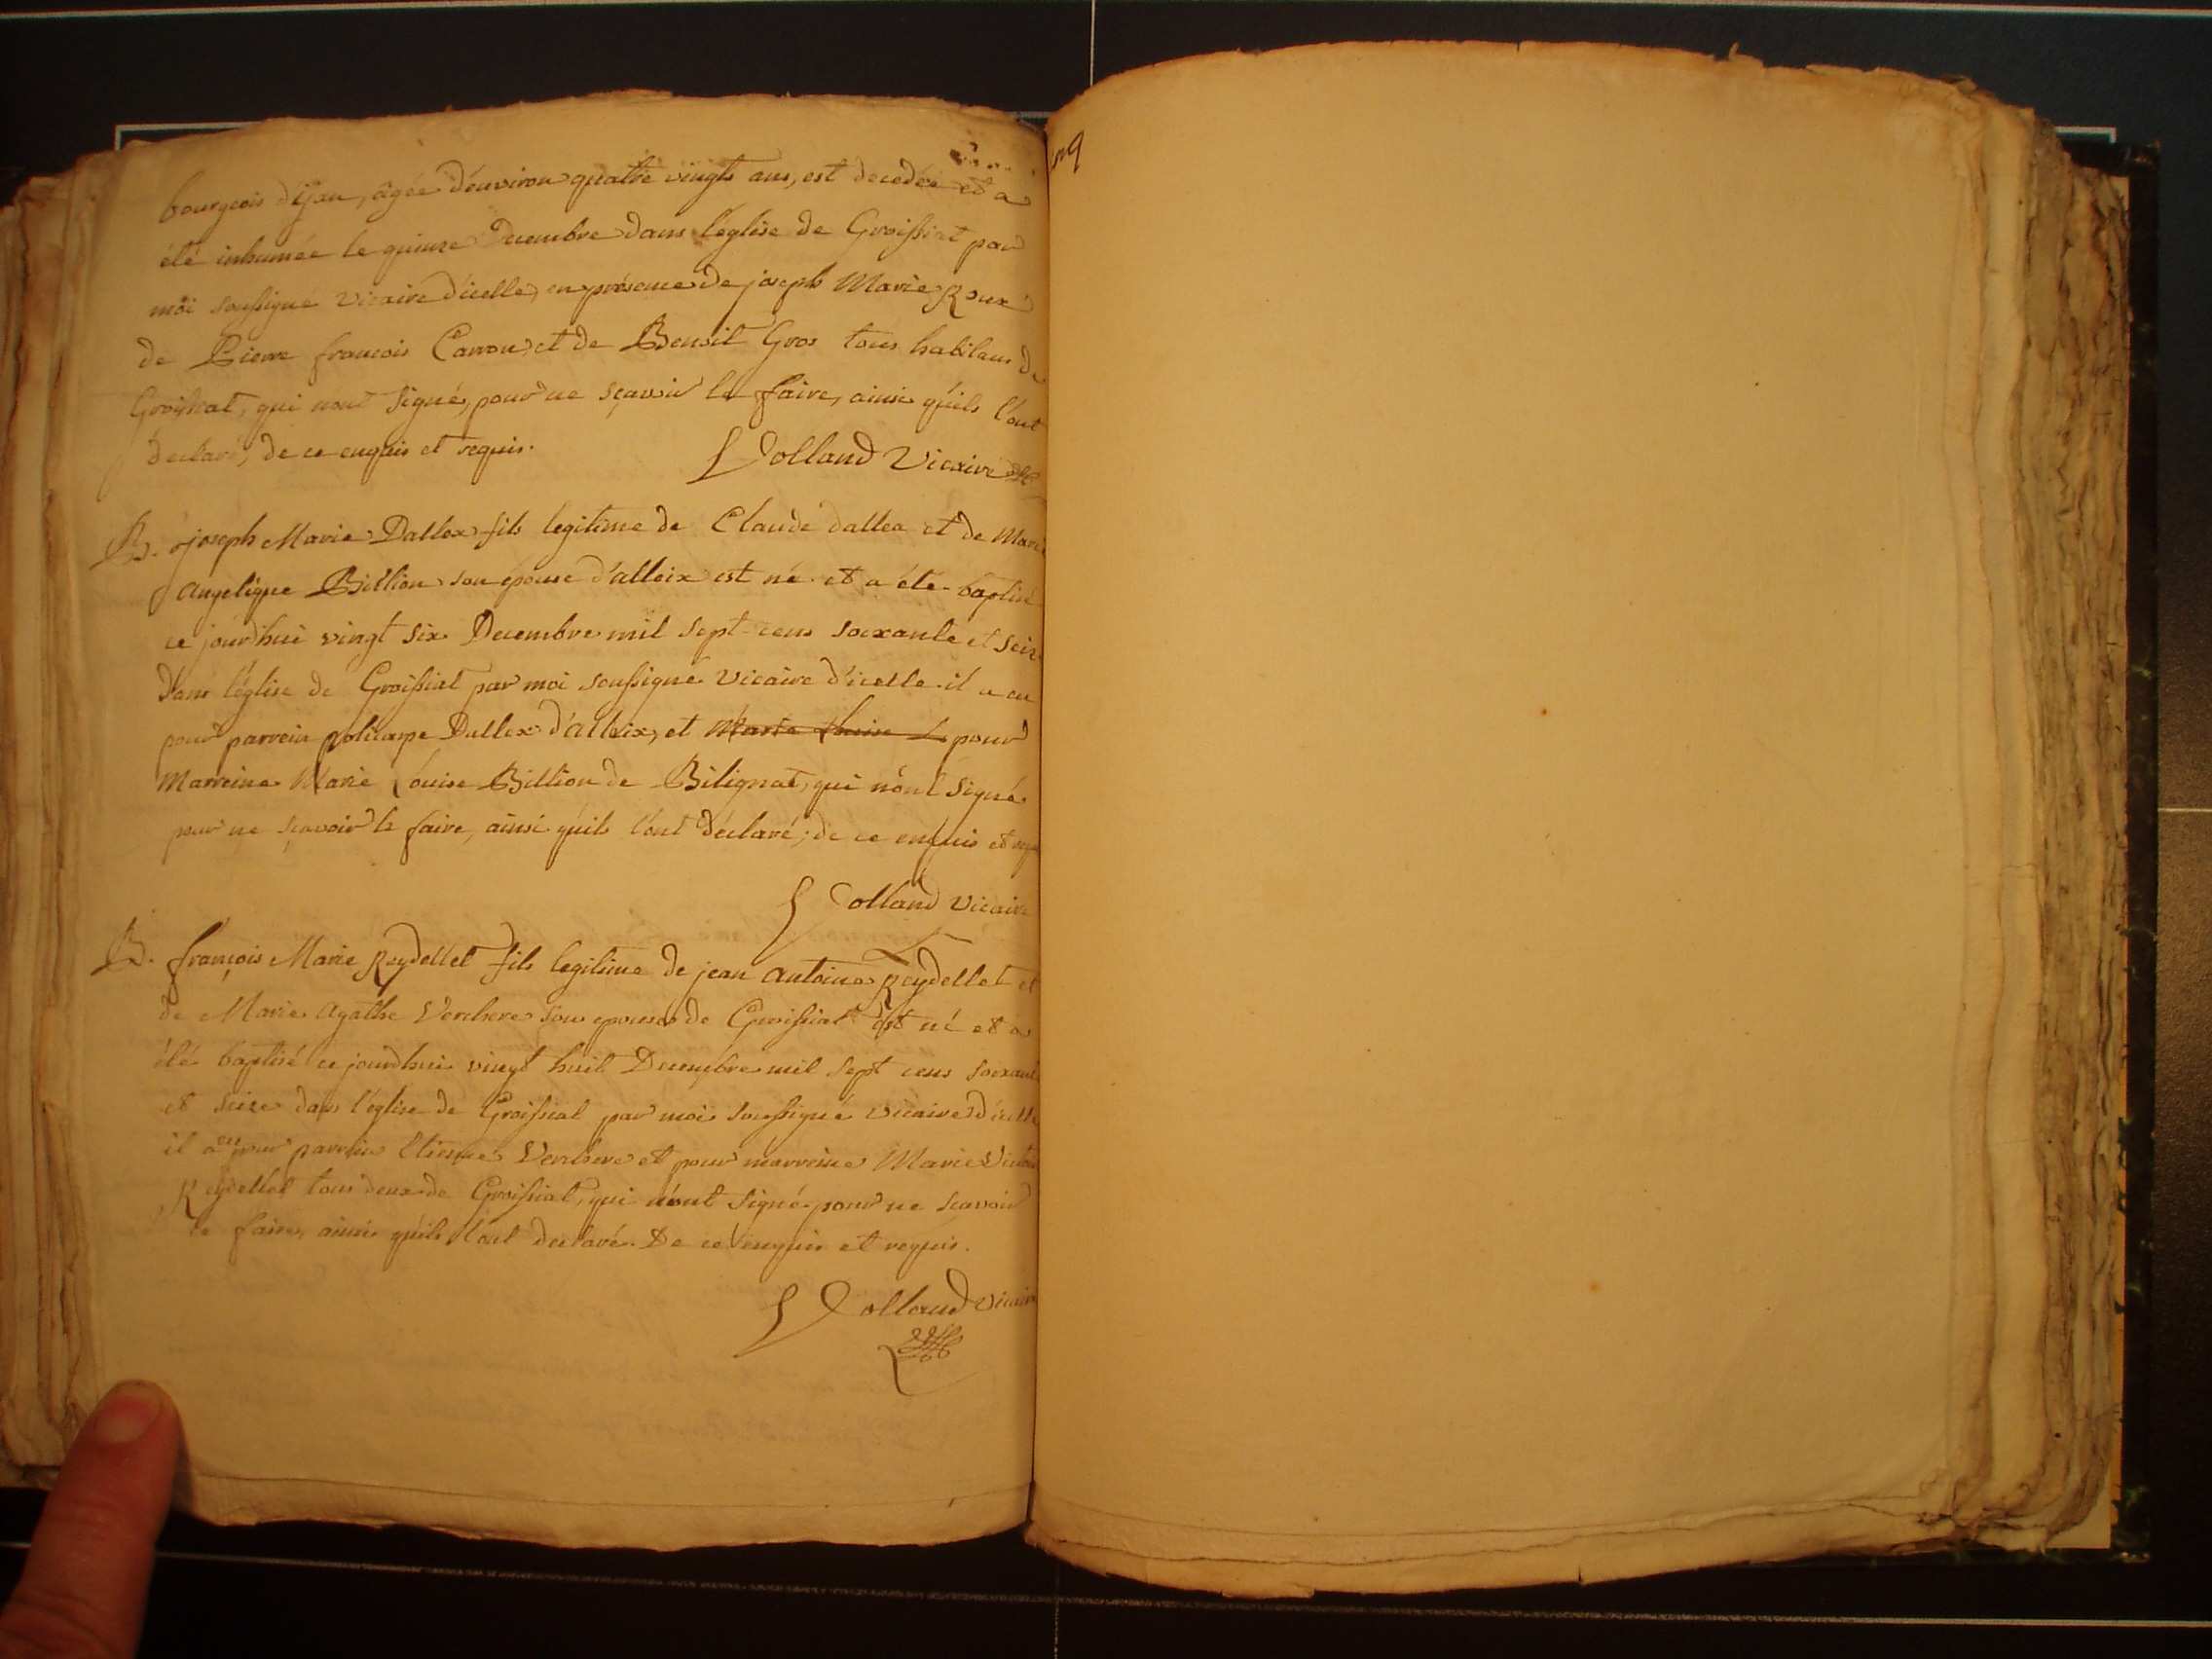 bourgeois d'ijan, agée d'environ quatre vingts ans, est decedée et a
été inhumée le quinze Decembre dans l'eglise de Groissiat par
moi soussigné vicaire d'icelle, en présence de joseph Marie Roux
de Pierre francois Carron, et de Benoit Gros tous habitans de
Groissiat, qui n'ont signé, pour ne sçavoir le faire, ainsi qu'ils l'ont
declaré, de ce enquis et requis.
Volland Vicaire
B. joseph Marie Dallex fils legitime de Claude dallex et de Marie
angelique Billion son épouse d'alleix est né et a été baptisé
ce jourd'hui vingt six Decembre mil sept cens soixante et seize
dans l'église de Groissiat par moi soussigné vicaire d'icelle. il a eu
pour parrein policarpe Dallex d'alleix, et Marie Louise pour
Marreine Marie Louise Billion de Bilignat, qui n'ont signé
pour ne sçavoir le faire, ainsi qu'ils l'ont déclaré; de ce enquis et requis
Volland vicaire
B. françois Marie Reydellet fils legitime de jean antoine Reydellet et
de Marie agathe Verchere son epouse de Groissiat est né et a
été baptisé ce jourdhui vingt huit Decembre mil sept cens soixante
et seize dans l'église de Groissiat par moi soussigné vicaire d'icelle
il a eu pour parrein Etienne Verchere et pour marreine Marie
Reydellet tous deux de Groissiat, qui n'ont signé pour ne scavoir
le faire, ainsi qu'ils l'ont declaré. De ce enquis et requis.
Volland vicaire